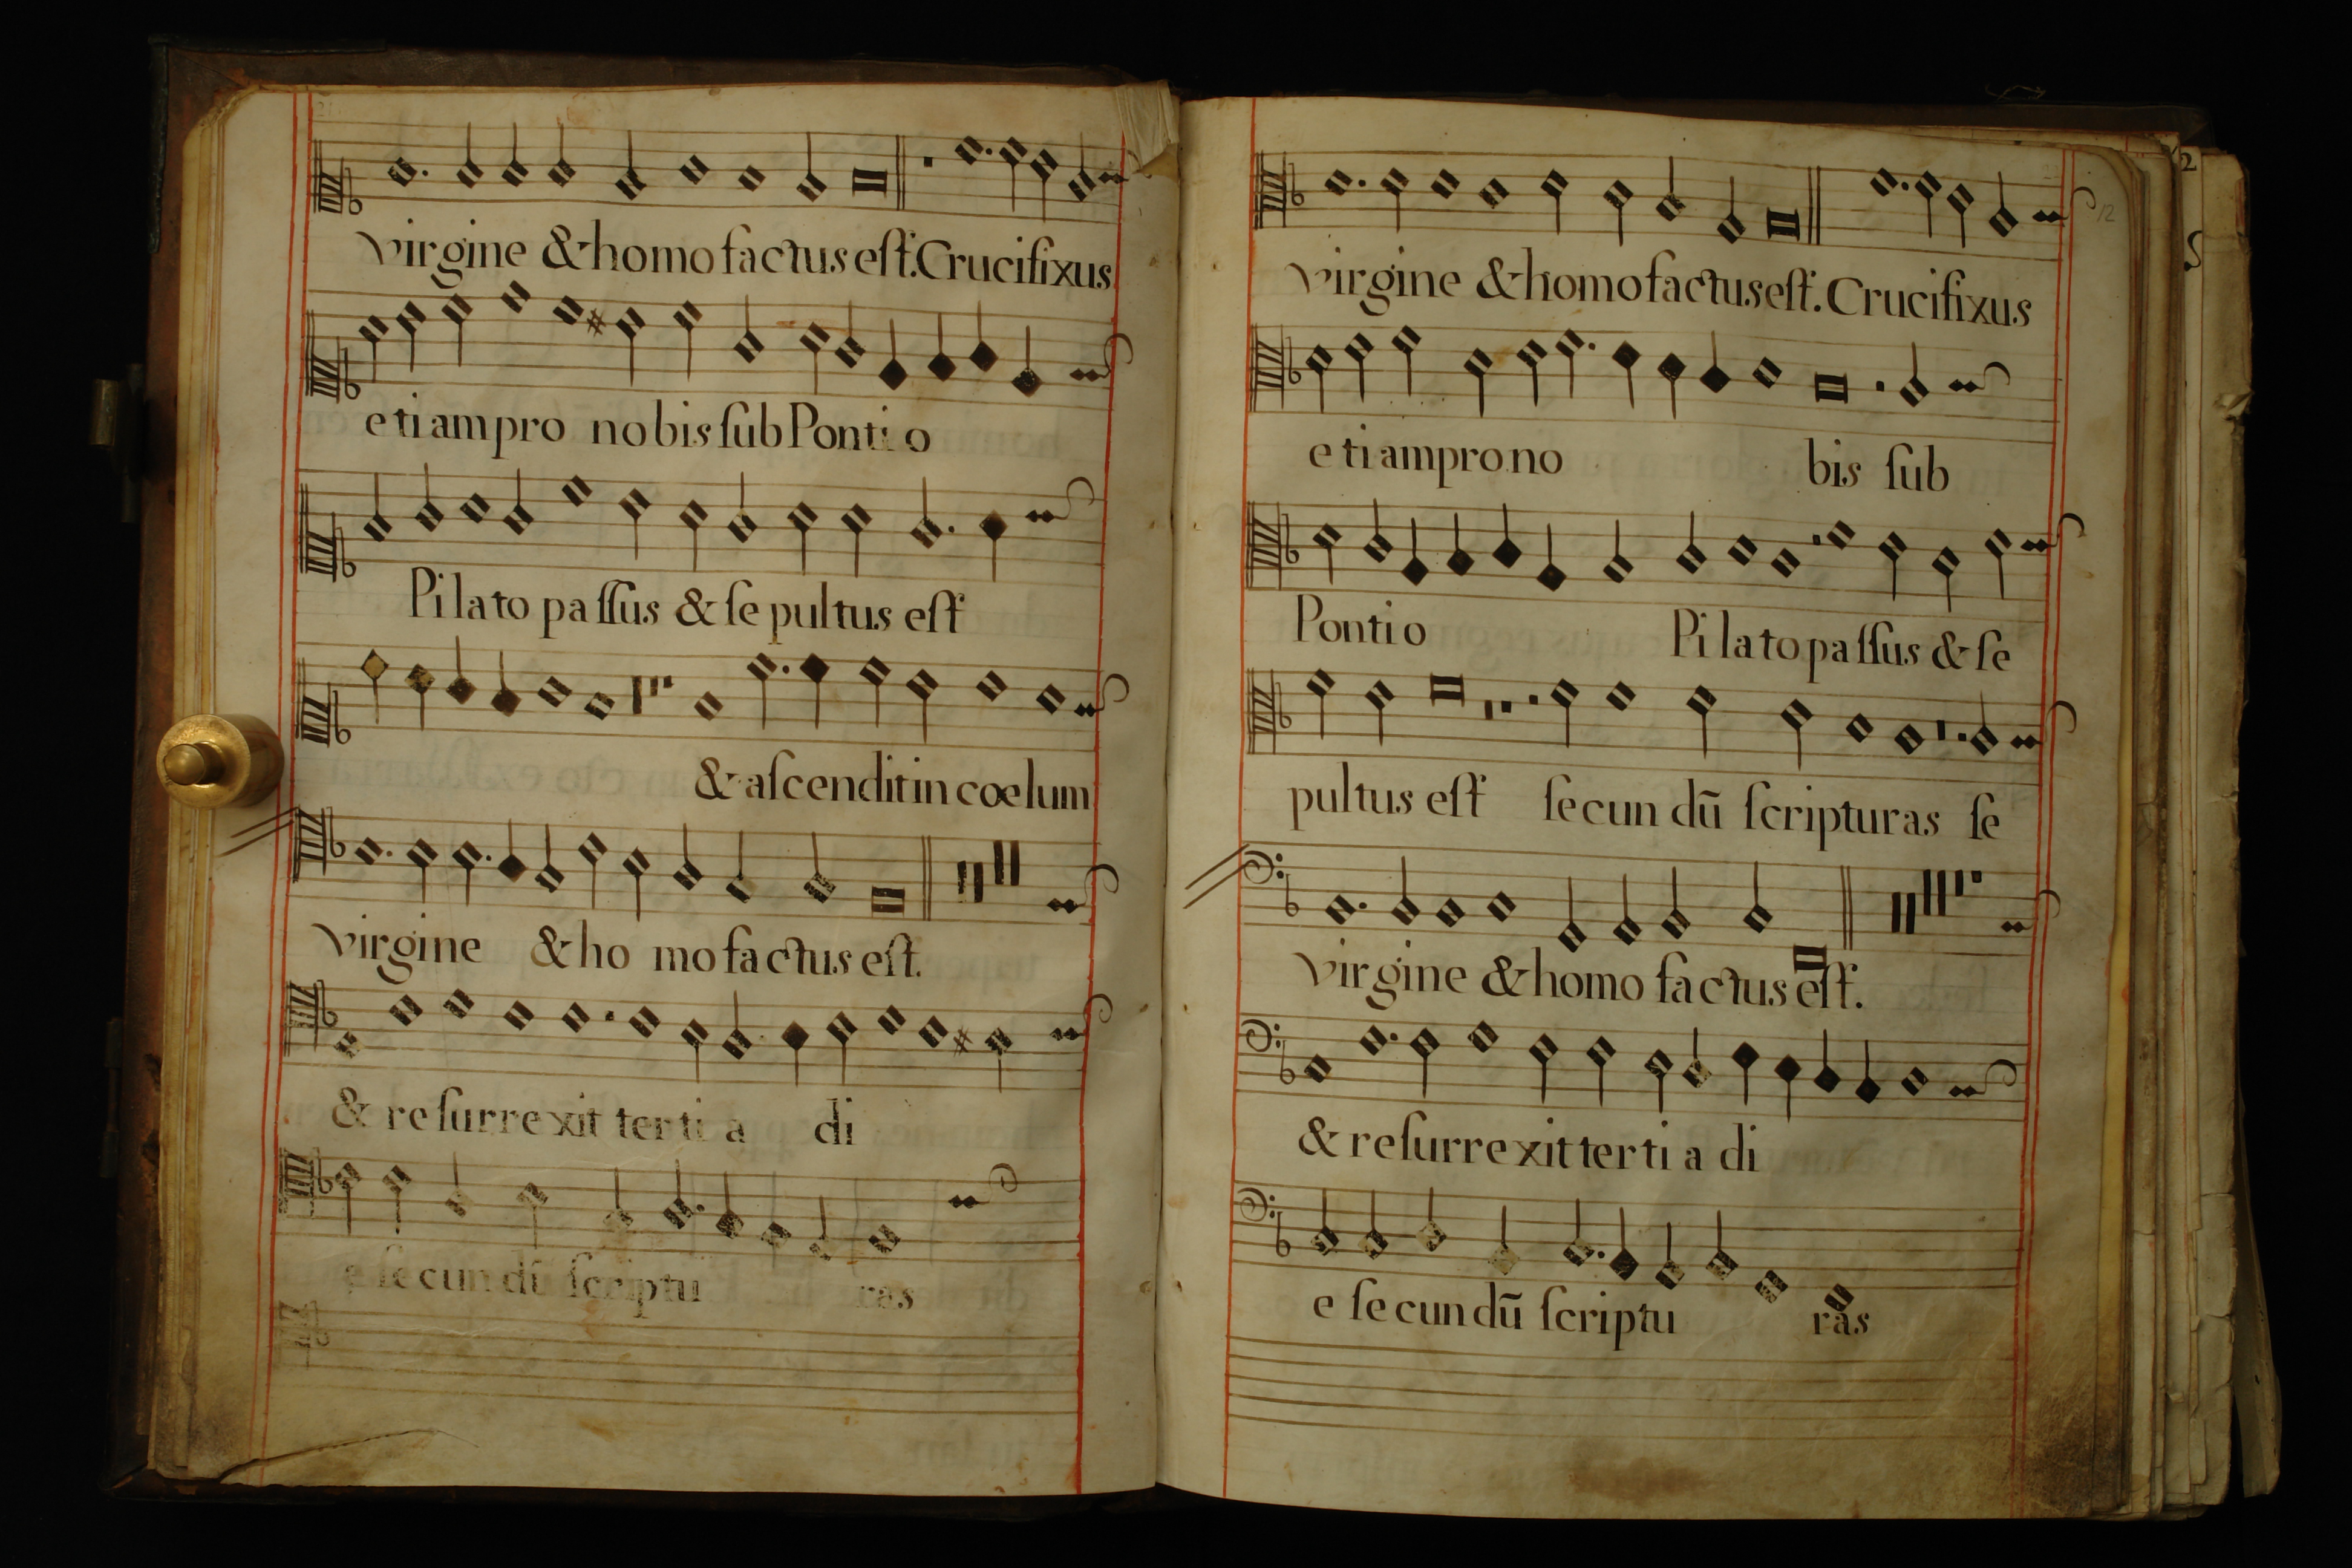 Virgine & homo factus est. Crucifixus
etiam pro nobis sub Pontio
Pilato passus & sepultus est
& ascendit in coelum
Virgine & homo factus est.
& resurrexit tertia di
e secundũ scriptu ras
12
Virgine & homo factus est. Crucifixus
etiam pro no bis sub
Pontio Pilato passus & se
pultus est secundũ scripturas se
Virgine & homo factus est.
& resurrexit tertia di
e secundũ scriptu ras
2